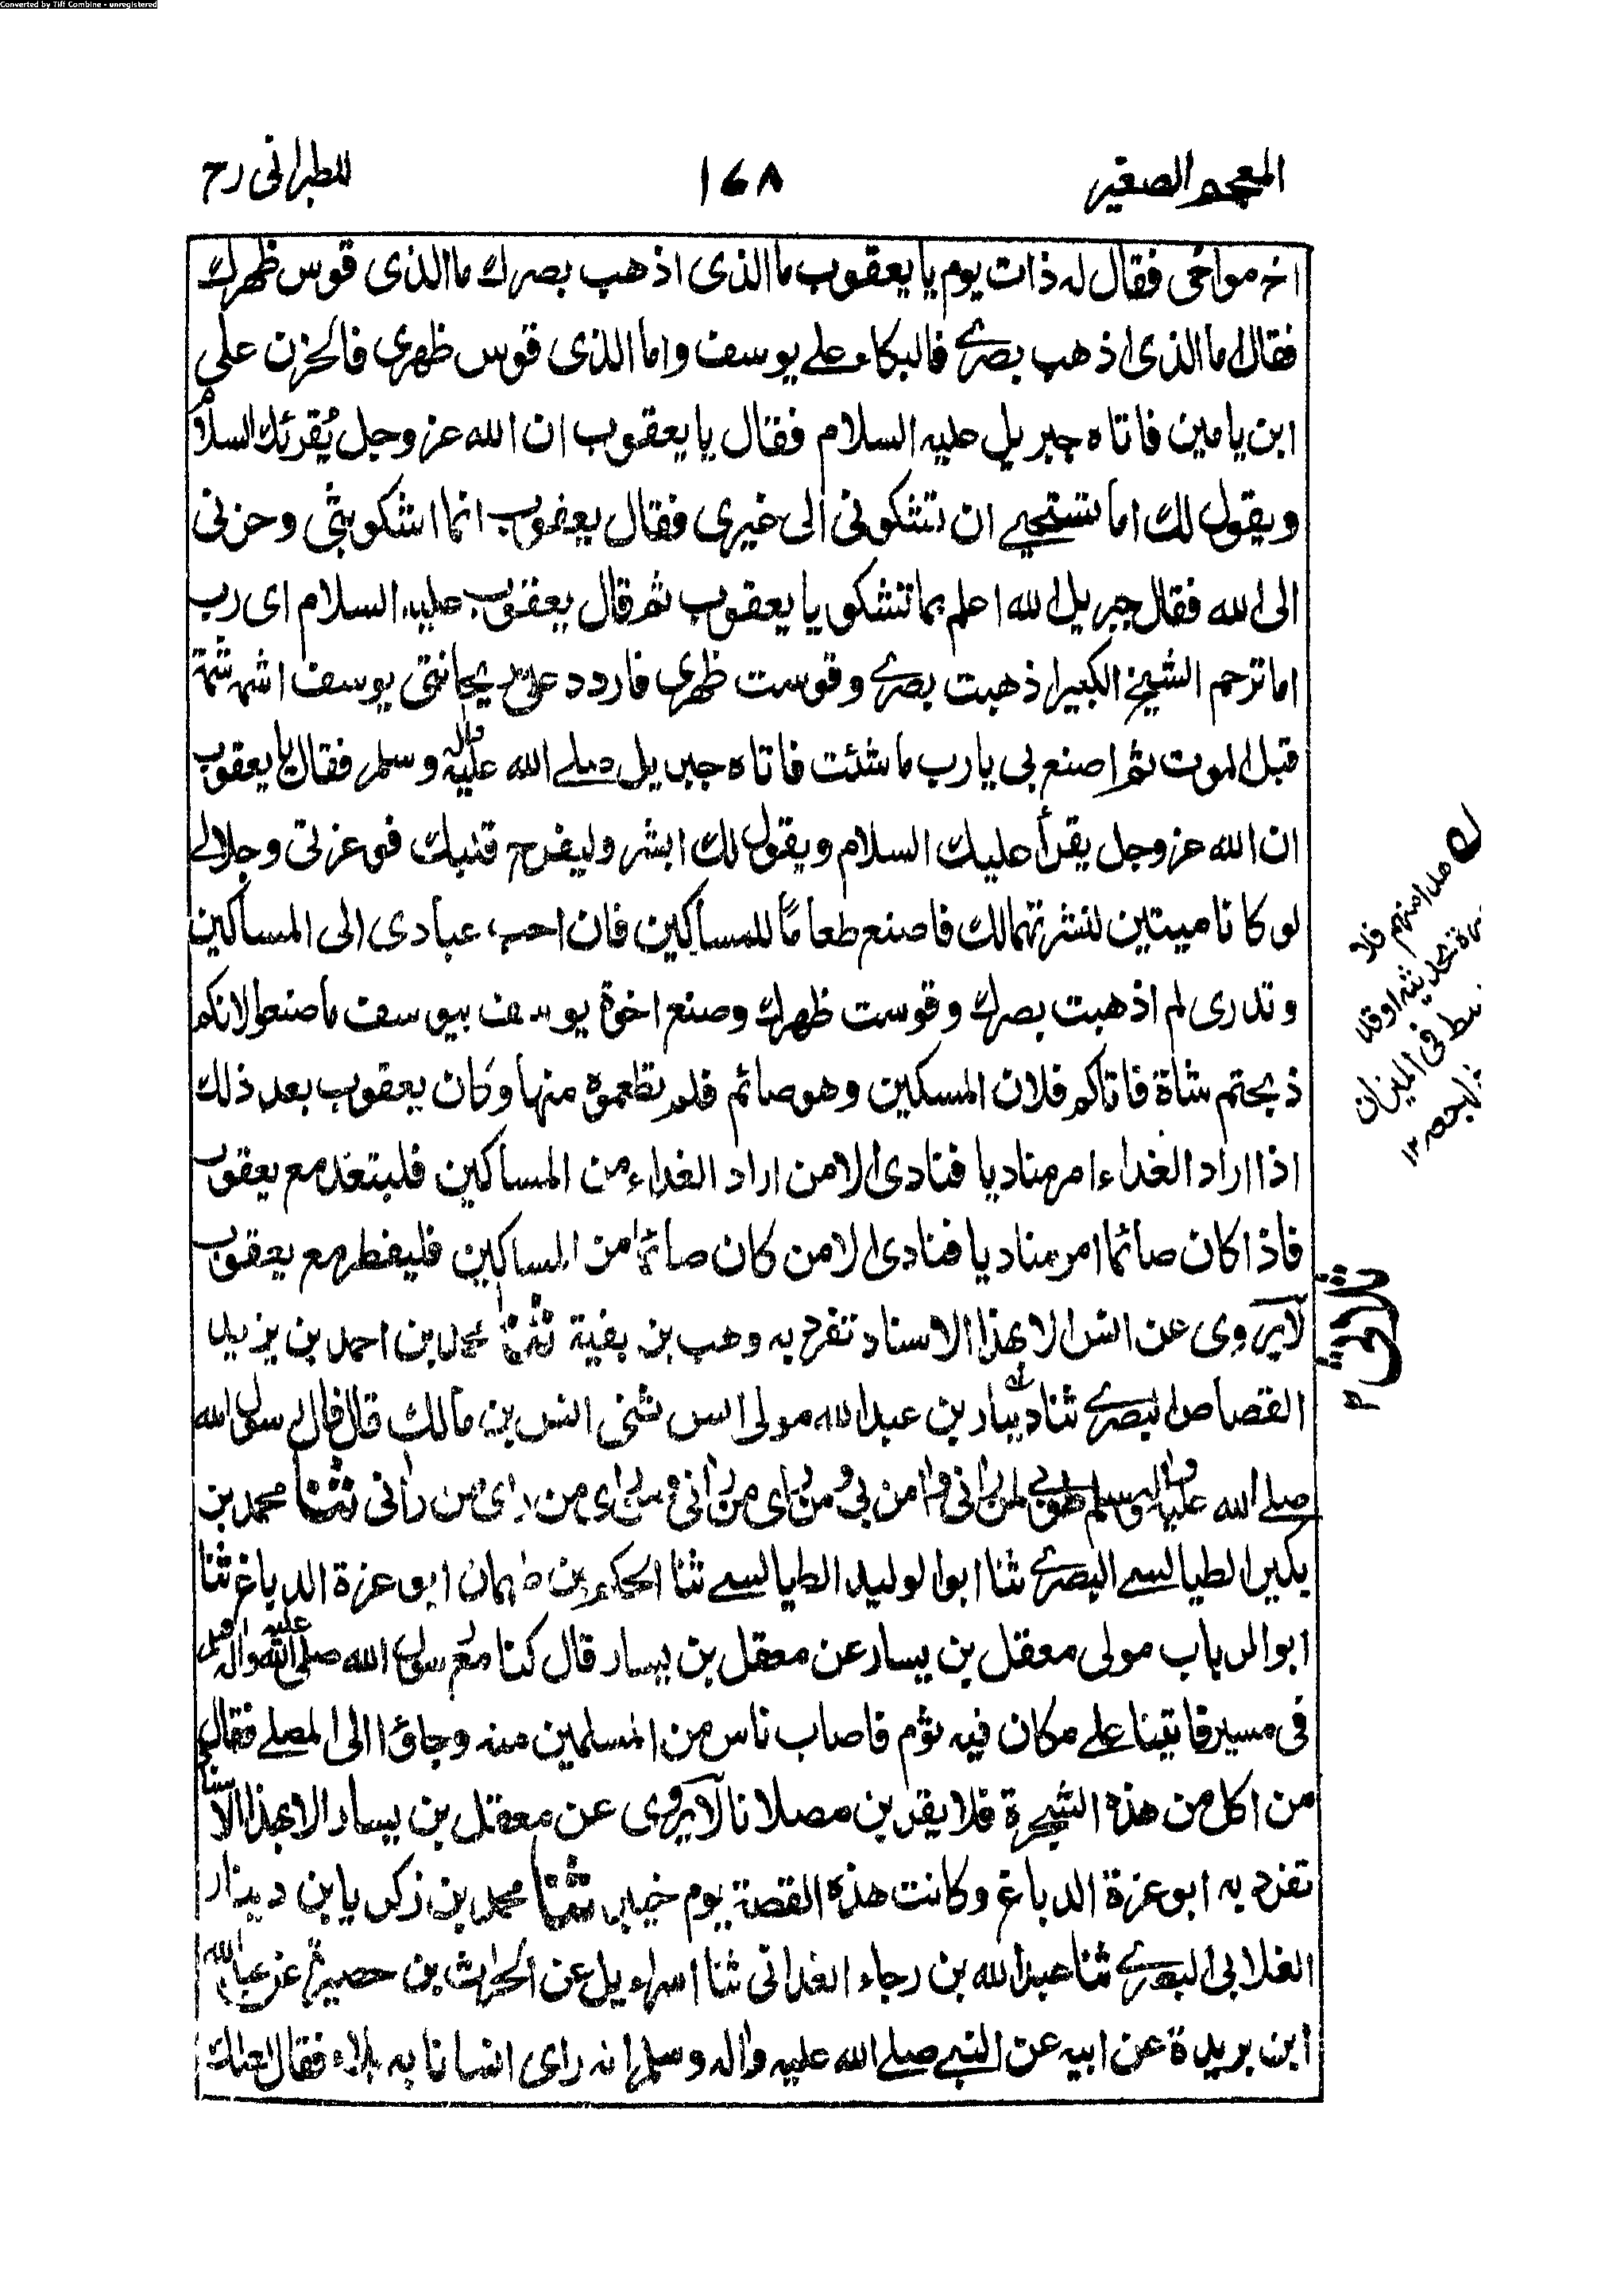 Converted by Tiff Combine - unregistered
المعجم الصغير ١٧٨ للطبرانى رح
اخ مواخى فقال له ذات يوم يا يعقوب ما الذى اذهب بصرك ما الذى قوس ظهرك
فقال اما الذى اذهب بصرے فالبكاء علے يوسف واما الذى قوس ظهرى فالحزن على
ابن يامين فاتاه جبريل عليه السلام فقال يا يعقوب ان الله عز وجل يُقرئك السلام
ويقول لك اما تستحيے ان تشكونى الى غيرى فقال يعقوب انما اشكو بثى وحزنى
الى الله فقال جبريل الله اعلم بما تشكو يا يعقوب ثم قال يعقوب عليه السلام اى رب
اما ترحم الشيخ الكبير اذهبت بصرے وقوست ظهرى فاردد علىّ ريحانتى يوسف اشمه شمة
قبل الموت ثم اصنع بى يا رب ما شئت فاتاه جبريل صلے الله عليه واله وسلم فقال يا يعقوب
ان الله عز وجل يقرأ عليك السلام ويقول لك ابشر وليفرح قلبك فوعزتى وجلالے
لو كانا ميتين لنشرتهما لك فاصنع طعامًا للمساكين فان احب عبادى الى المساكين
وتدرى لم اذهبت بصرك وقوست ظهرك وصنع اخوة يوسف بيوسف ما صنعوا لانكم
ذبحتم شاة فاتاكم فلان المسكين وهو صائم فلم تطعموه منها وكان يعقوب بعد ذلك
اذا اراد الغداء امر مناديا فنادى الا من اراد الغداء من المساكين فليتغد مع يعقوب
فاذا كان صائما امر مناديا فنادى الا من كان صائما من المساكين فليفطر مع يعقوب
لا يروى عن انس الا بهذا الاسناد تفرد به وهب بن بقية ثنا محمد بن احمد بن يزيد
القصاص البصرے ثنا دينار بن عبد الله مولى انس ثنى انس بن مالك قال قال رسول الله
صلے الله عليه واله وسلم طوبے لمن رانى وامن بى ومن راى من رانى ومن راى من راى من رانى ثنا محمد بن
بكير الطيالسے البصرے ثنا ابو الوليد الطيالسے ثنا الحكم بن طهمان ابو عزة الدباغ ثنا
ابو الرباب مولى معقل بن يسار عن معقل بن يسار قال كنا مع رسول الله صلى الله عليه واله وسلم
فى مسير فاتينا علے مكان فيه ثوم فاصاب ناس من المسلمين منه وجاؤا الى المصلے فقال
من اكل من هذه الشجرة فلا يقربن مصلانا لا يروى عن معقل بن يسار الا بهذا الاسناد
تفرد به ابو عزة الدباغ وكانت هذه القصة يوم خيبر ثنا محمد بن زكريا بن دينار
الغلابى البصرے ثنا عبد الله بن رجاء الغدانى ثنا اسراءيل عن الحارث بن حصيرة عن عبد الله
ابن بريدة عن ابيه عن النبے صلے الله عليه واله وسلم انه راى انسانا به بلاء فقال لعلك
فى الميزان